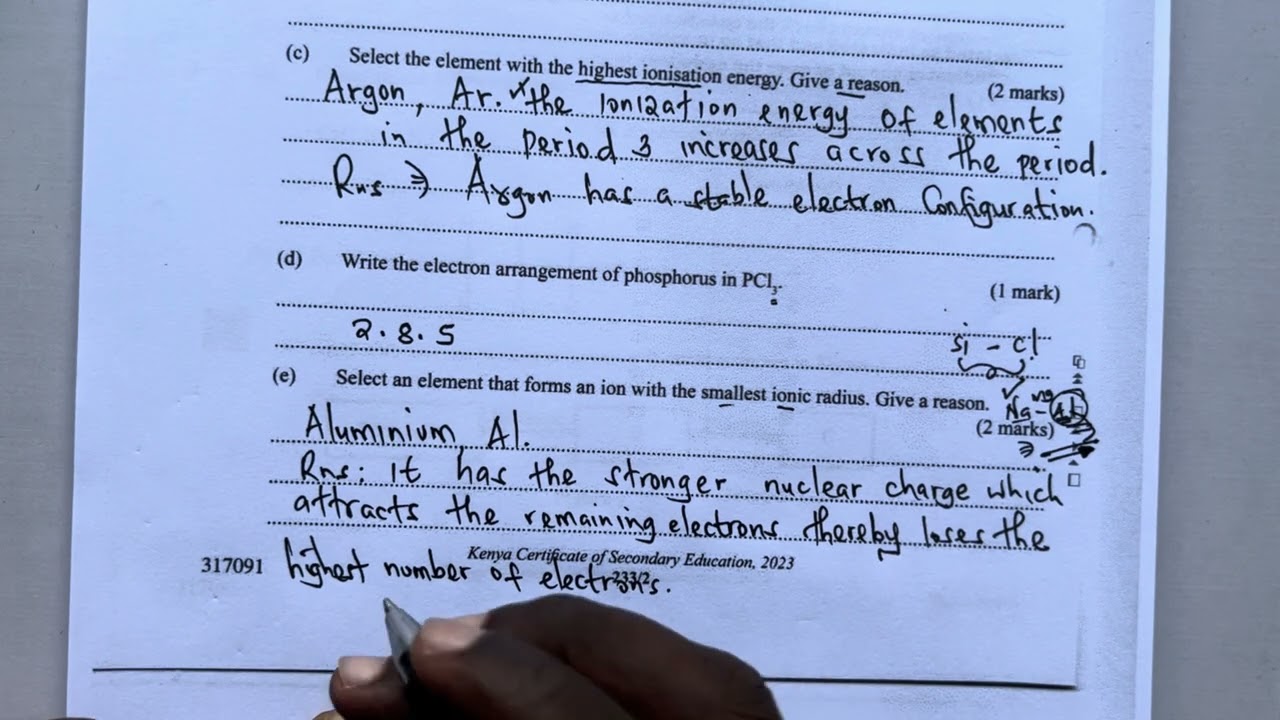 (c) Select the element with the highest ionisation energy. Give a reason. (2 marks)
Argon, Ar. the Ionization energy of elements
in the Period 3 increases across the period.
Rns ⇒ Argon has a stable electron Configuration.
(d) Write the electron arrangement of phosphorus in PCl₃. (1 mark)
2.8.5
Si - Cl
(e) Select an element that forms an ion with the smallest ionic radius. Give a reason. (2 marks)
Na -
Aluminium, Al.
Rns: It has the stronger nuclear charge which
attracts the remaining electrons thereby loses the
Kenya Certificate of Secondary Education, 2023
317091 highest number of electrons.
233/2